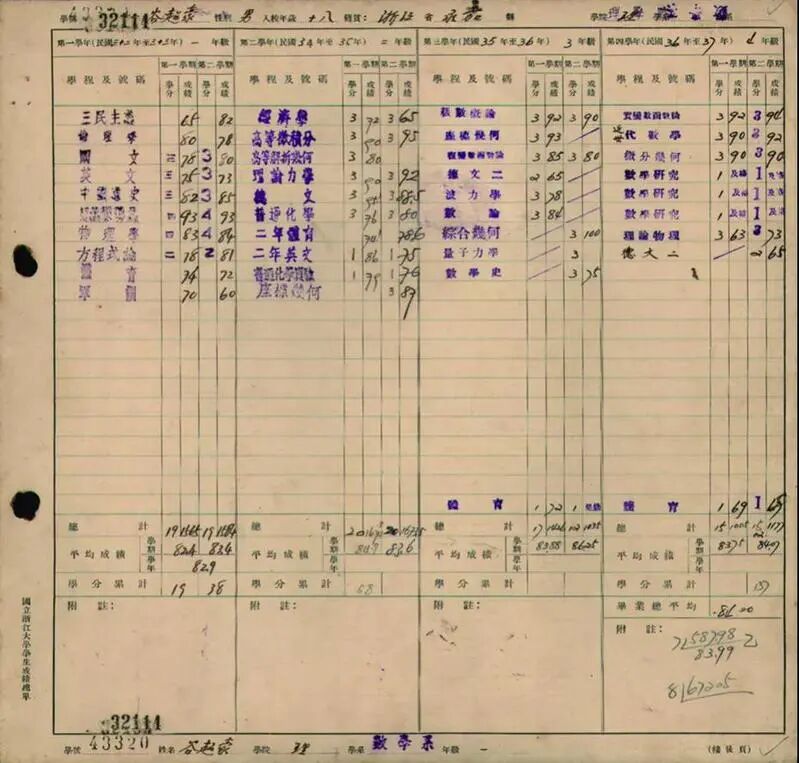 學號 32114 谷超豪 性別 男 入校年歲 十八 籍貫: 浙江 省 永嘉 縣 學院 理 學系
第一學年(民國 年至 年) 一 年級 第二學年(民國 34 年至 35 年) 二 年級 第三學年(民國 35 年至 36 年) 3 年級 第四學年(民國 36 年至 37 年) 4 年級
學程及號碼 第一學期 第二學期 學程及號碼 第一學期 第二學期 學程及號碼 第一學期 第二學期 學程及號碼 第一學期 第二學期
學分 成績 學分 成績 學分 成績 學分 成績 學分 成績 學分 成績 學分 成績 學分 成績
三民主義 65 82 經濟學 3 72 3 65 級數概論 3 92 3 90 實變數函數論 3 92 3 94
倫理學 80 78 高等微積分 3 90 3 95 座標幾何 3 93 近世代數學 3 90 3 92
國文 三 78 3 80 高等解析幾何 3 80 複變數函數論 3 85 3 80 微分幾何 3 90 3 90
英文 三 75 3 73 理論力學 3 90 3 92 德文二 2 65 數學研究 1 及格 1 及格
中國通史 三 82 3 85 德文 3 3 88.5 波力學 3 78 數學研究 1 及格 1 及格
四 93 4 93 普通化學 3 76 3 80 數論 3 84 數學研究 1 及格 1
物理學 四 83 4 84 二年體育 78.6 綜合幾何 3 100 理論物理 3 63 3 73
方程式論 二 78 2 81 二年英文 1 86 1 75 量子力學 3 德文二 2 65
體育 74 72 普通化學實驗 1 79 1 76 數學史 3 75
軍訓 70 60 座標幾何 3 87
體育 1 72 1 體育 1 69 1 65
總計 19 1565 19 1584 總計 20 20 總計 17 1426 12 1035 總計 15 1005 15 1177
平均成績 學期 學年 82.4 83.4 平均成績 學期 學年 84.9 83.6 平均成績 學期 學年 83.88 86.25 平均成績 學期 學年 83.75 84.07
82.9
學分累計 19 38 學分累計 68 學分累計 學分累計 137
附註: 附註: 附註: 畢業總平均
附註:
7 58798 2
83.99
8167205
國立浙江大學學生成績總單
32114
學號 43320 姓名 谷超豪 學院 理 學系 數學系 年級 一 (接後頁)